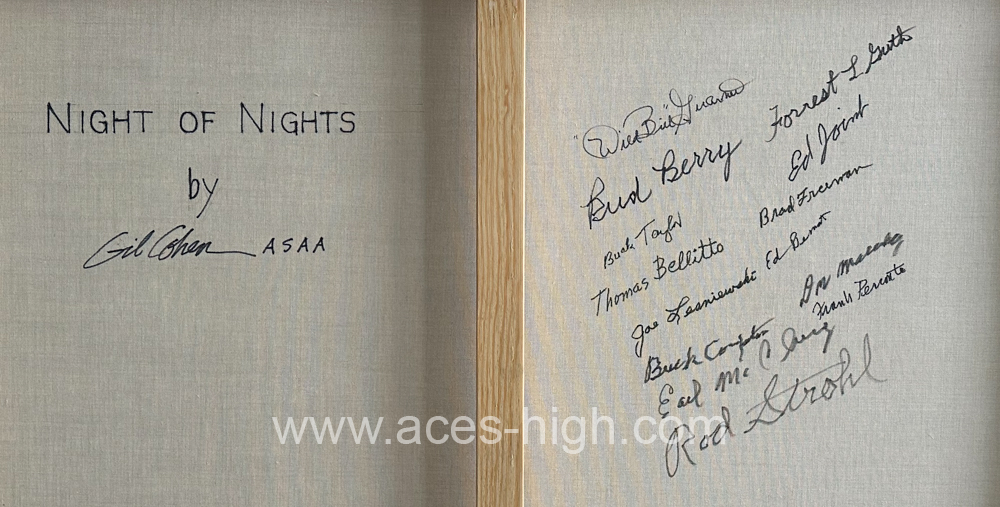 NIGHT OF NIGHTS
by
Gil Cohen ASAA
"Wild Bill" Guarnere
Forrest L Guth
Bud Berry
Ed Joint
Buck Taylor
Brad Freeman
Thomas Bellitto
Joe Lesniewski
Ed Bernat
Don Malarkey
Buck Compton
Frank Perconte
Earl McClung
Rod Strohl
www.aces-high.com